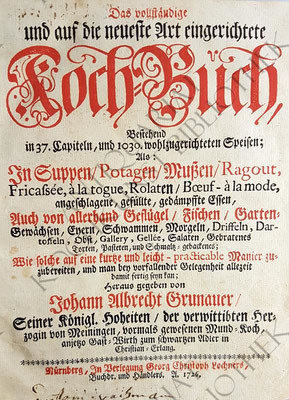 Das vollständige
und auf die neueste Art eingerichtete
Koch-Buch,
Bestehend
in 37. Capiteln, und 1030. wohlzugerichteten Speisen;
Als:
In Suppen/ Potagen/ Mußen/ Ragout,
Fricassée, à la togue, Rolaten/ Bœuf-à la mode,
angschlagene, gefüllte, gedämpffte Essen,
Auch von allerhand Geflügel/ Fischen/ Garten-
Gewächsen, Eyern, Schwammen, Morgeln, Driffeln, Dar-
toffeln, Obst, Gallery, Gellée, Salaten, Gebratenes
Torten, Pasteten, und Schmaltz-gebackenes;
Wie solche auf eine kurtze und leicht-practicable Manier zu-
zubereiten, und man bey vorfallender Gelegenheit allezeit
damit fertig seyn kan;
Heraus gegeben von
Johann Albrecht Grunauer/
Seiner Königl. Hoheiten/ der verwittibten Her-
zogin von Meiningen, vormals gewesenen Mund-Koch,
anjetzo Gast-Wirth zum schwartzen Adler in
Christian-Erlang.
Nürnberg, In Verlegung Georg Christoph Lochners,
Buchdr. und Händlers. A. 1726.